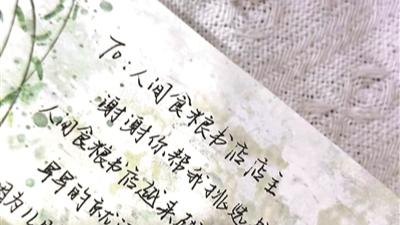 To：人间食粮书店店主
谢谢你帮我挑选
人间食粮书店越来
早早的就
因为儿